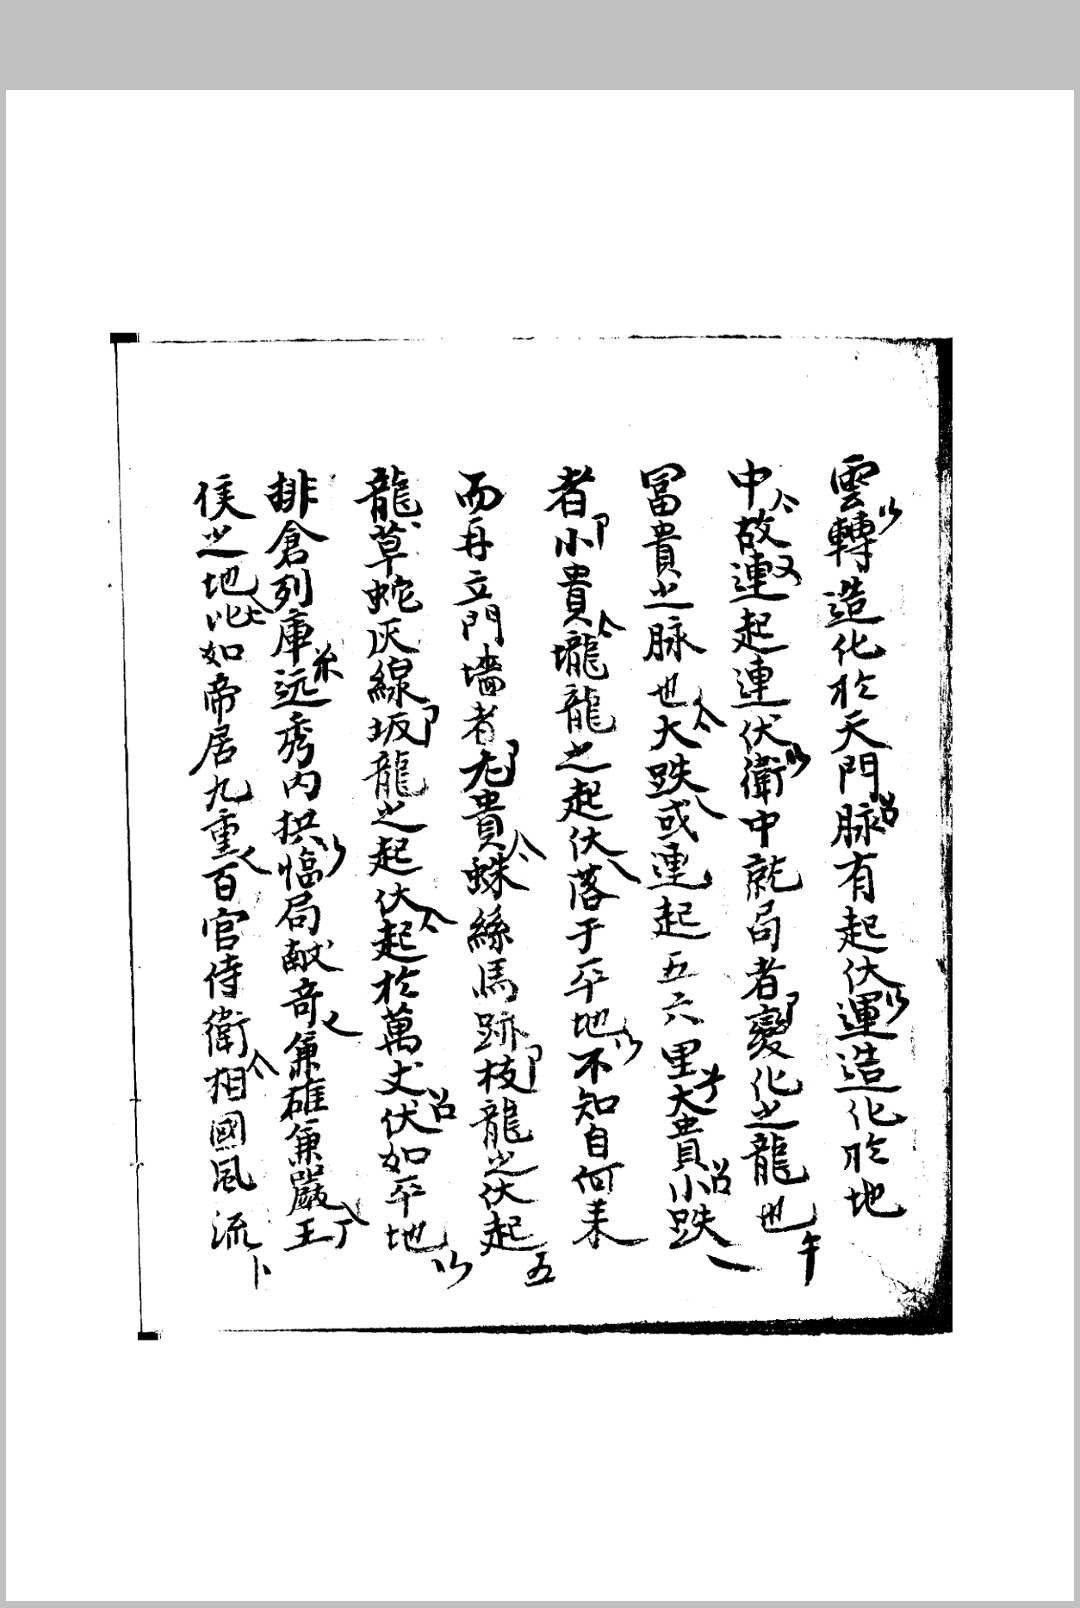 雲轉造化於天門脉有起伏運造化於地
中故連起連伏衛中就局者變化之龍也
冨貴之脉也大跌或連起五六里大貴小跌
者小貴壠龍之起伏落于平地不知自何来
而再立門墻者尤貴蛛絲馬跡枝龍之伏起
龍草蛇灰線坂龍之起伏起於萬丈伏如平地
排倉列庫远秀内拱临局献奇兼雄兼嚴王
侯之地此如帝居九重百官侍衛相國風流